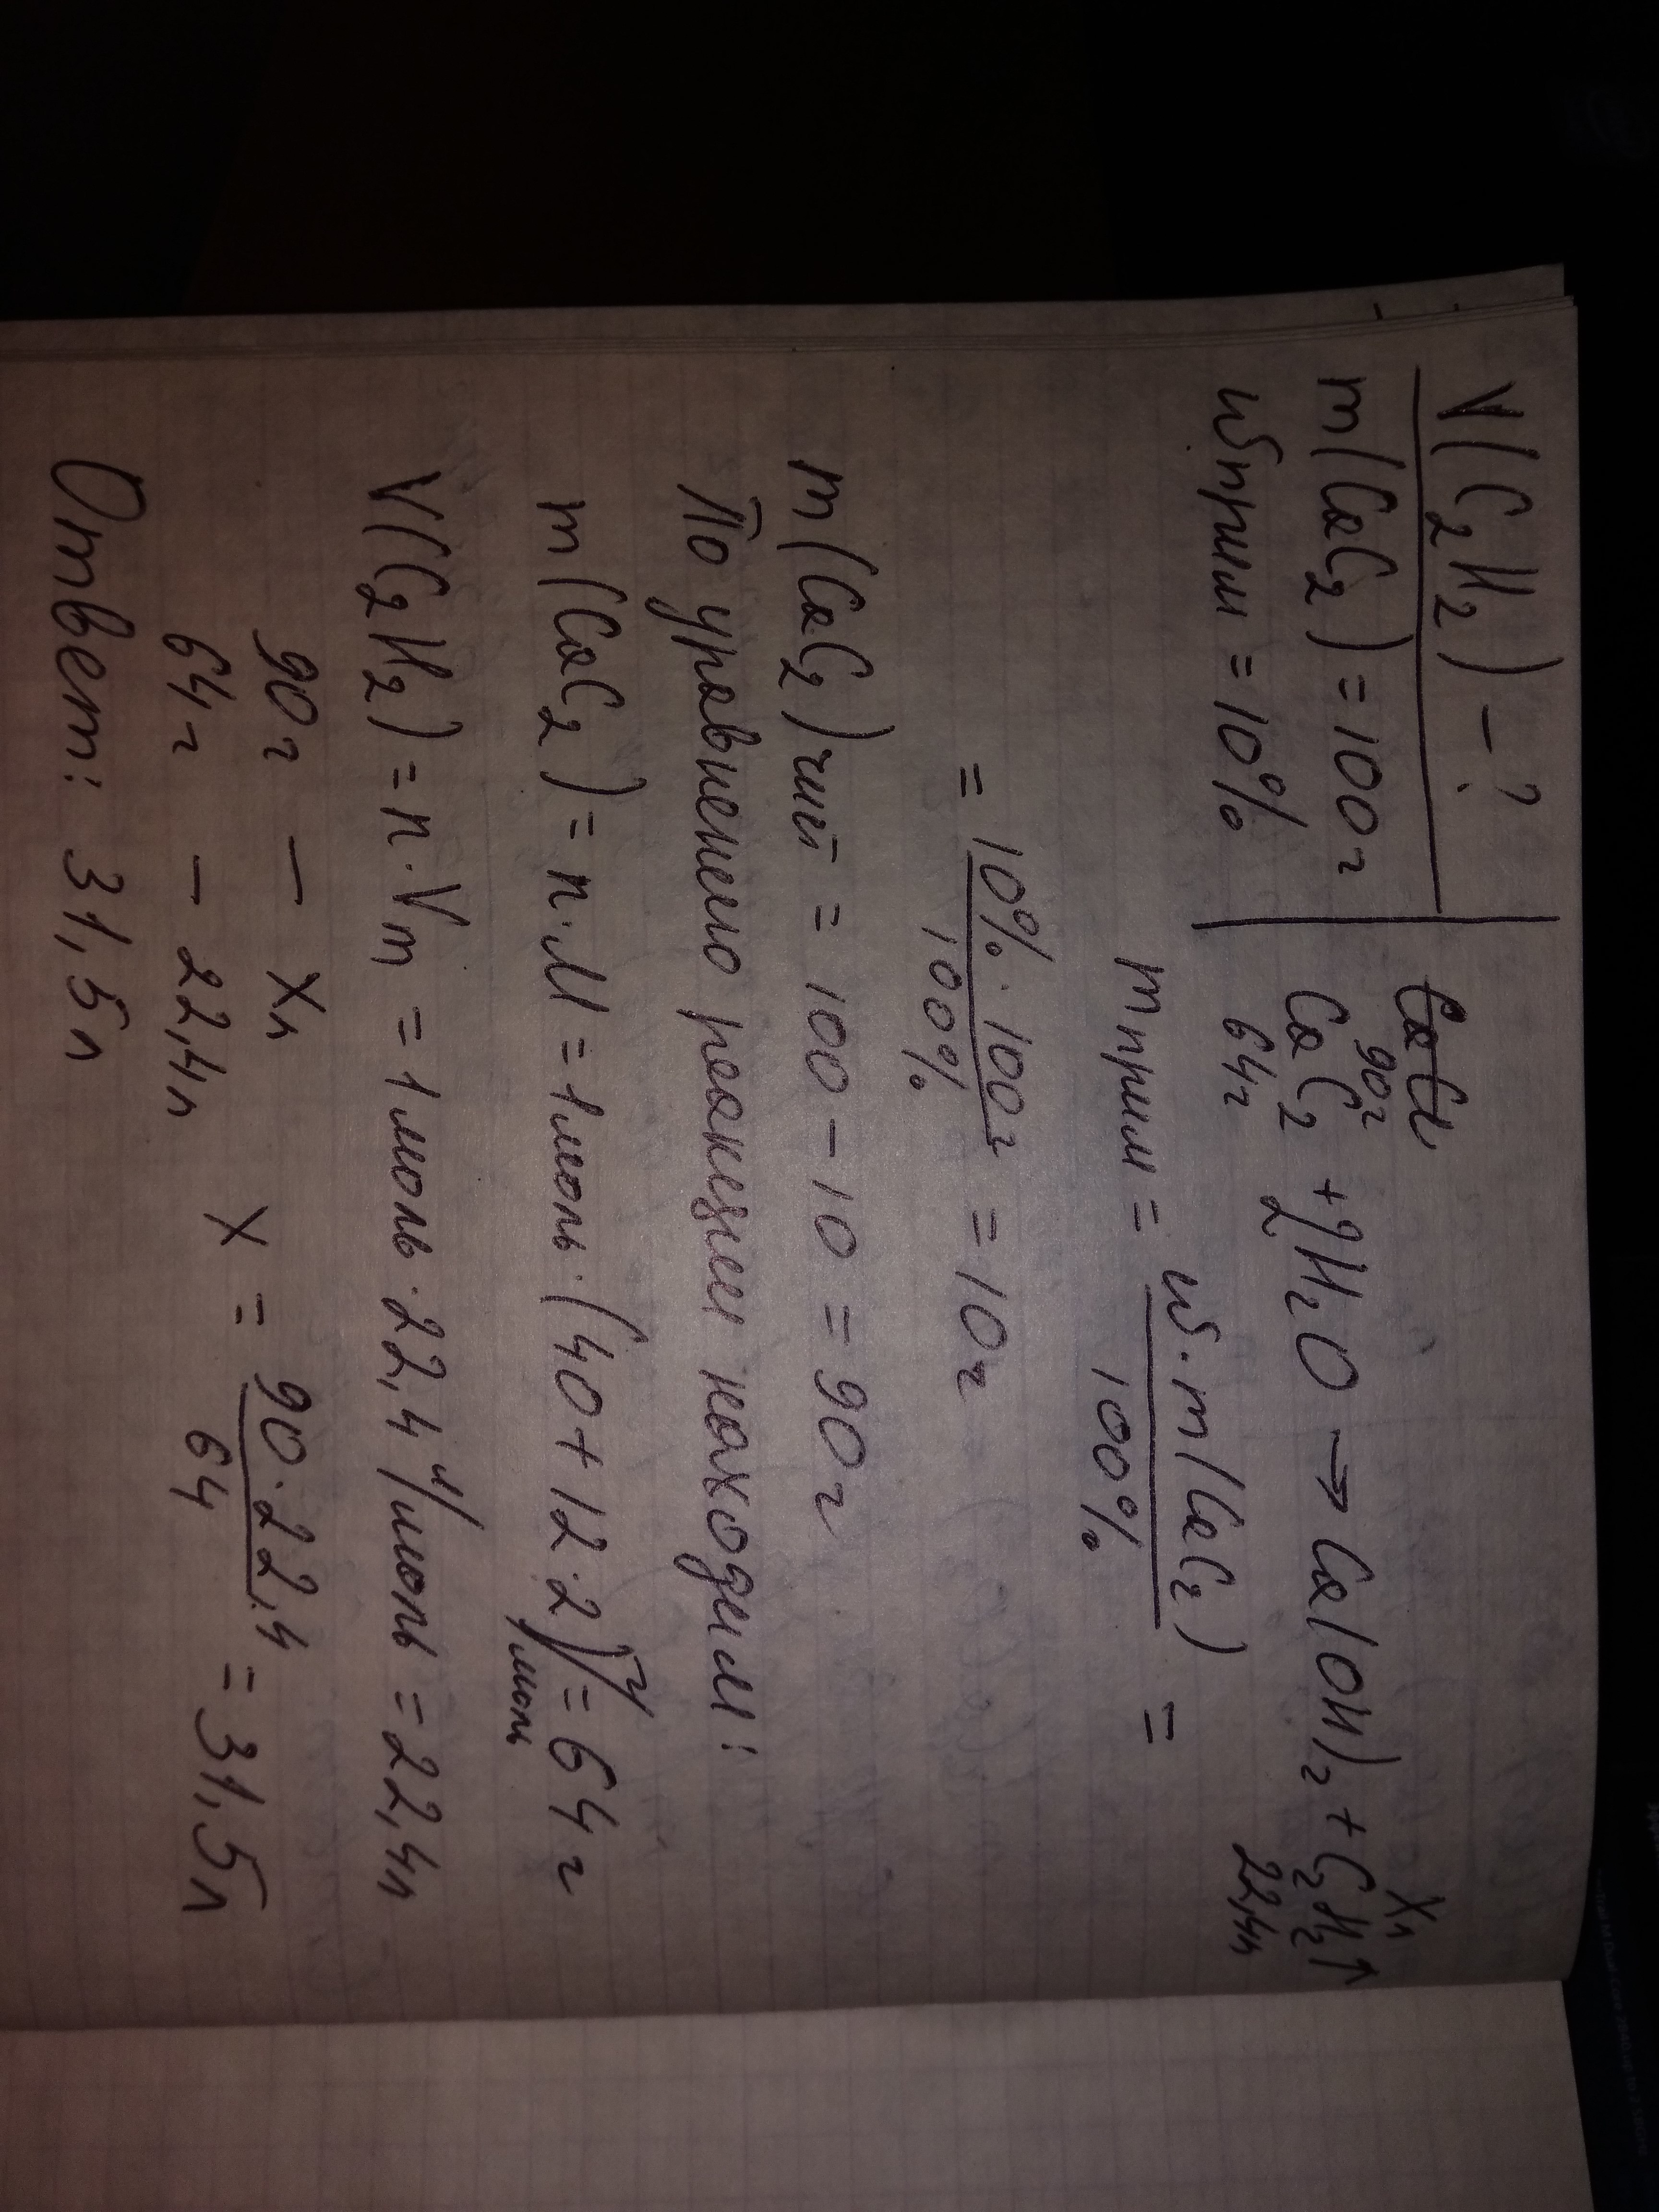 V(C₂H₂) - ?
m(CaC₂) = 100г
ωприм = 10%
90г Xл
CaC₂ + 2H₂O → Ca(OH)₂ + C₂H₂↑
64г 22,4л
mприм = ω · m(CaC₂) / 100% =
= 10% · 100г / 100% = 10г
m(CaC₂)чист = 100 - 10 = 90г
По уравнению реакции находим:
m(CaC₂) = n · M = 1моль · (40 + 12 · 2) г/моль = 64г
V(C₂H₂) = n · Vm = 1моль · 22,4 л/моль = 22,4л
90г — Xл
64г — 22,4л
X = 90 · 22,4 / 64 = 31,5л
Ответ: 31,5л